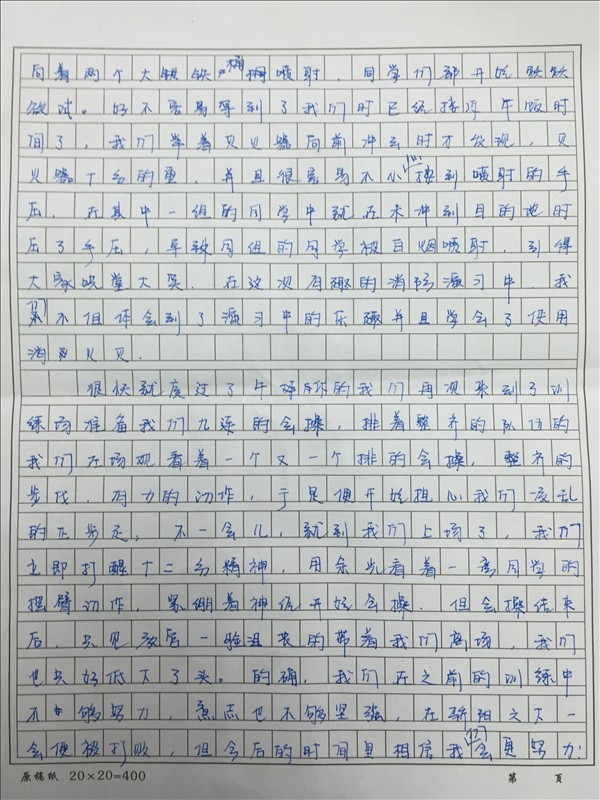 向着两个大铁桶喷射，同学们都开始跃跃
欲试。好不容易等到了我们时已经接近午饭时
间了，我们举着灭火器向前冲去时才发现，灭
火器十分的重，并且很容易不小心按到喷射的手
压，在其中一组的同学中就在未冲到目的地时
压了手压，导致同组的同学被白烟喷射，引得
大家哄堂大笑，在这次有趣的消防演习中，我
们不但体会到了演习中的乐趣并且学会了使用
消防火
很快就度过了午 的我们再次来到了训
练场准备我们九连的会操，排着整齐的队伍的
我们在场观看着一个又一个排的会操，整齐的
步伐，有力的动作，于是便开始担心我们凌乱
的正步是，不一会儿，就到我们上场了，我们
立即打醒十二分精神，用余光看着一旁同学的
摆臂动作，紧绷着神经开始会操．但会操结束
后，只见教官一脸沮丧的带着我们离场，我们
也只好低下了头。的确，我们在之前的训练中
不够努力，意志也不够坚强，在骄阳之下一
会便被打败，但今后的时间里相信我们会更努力
原稿纸 20×20=400 第 页